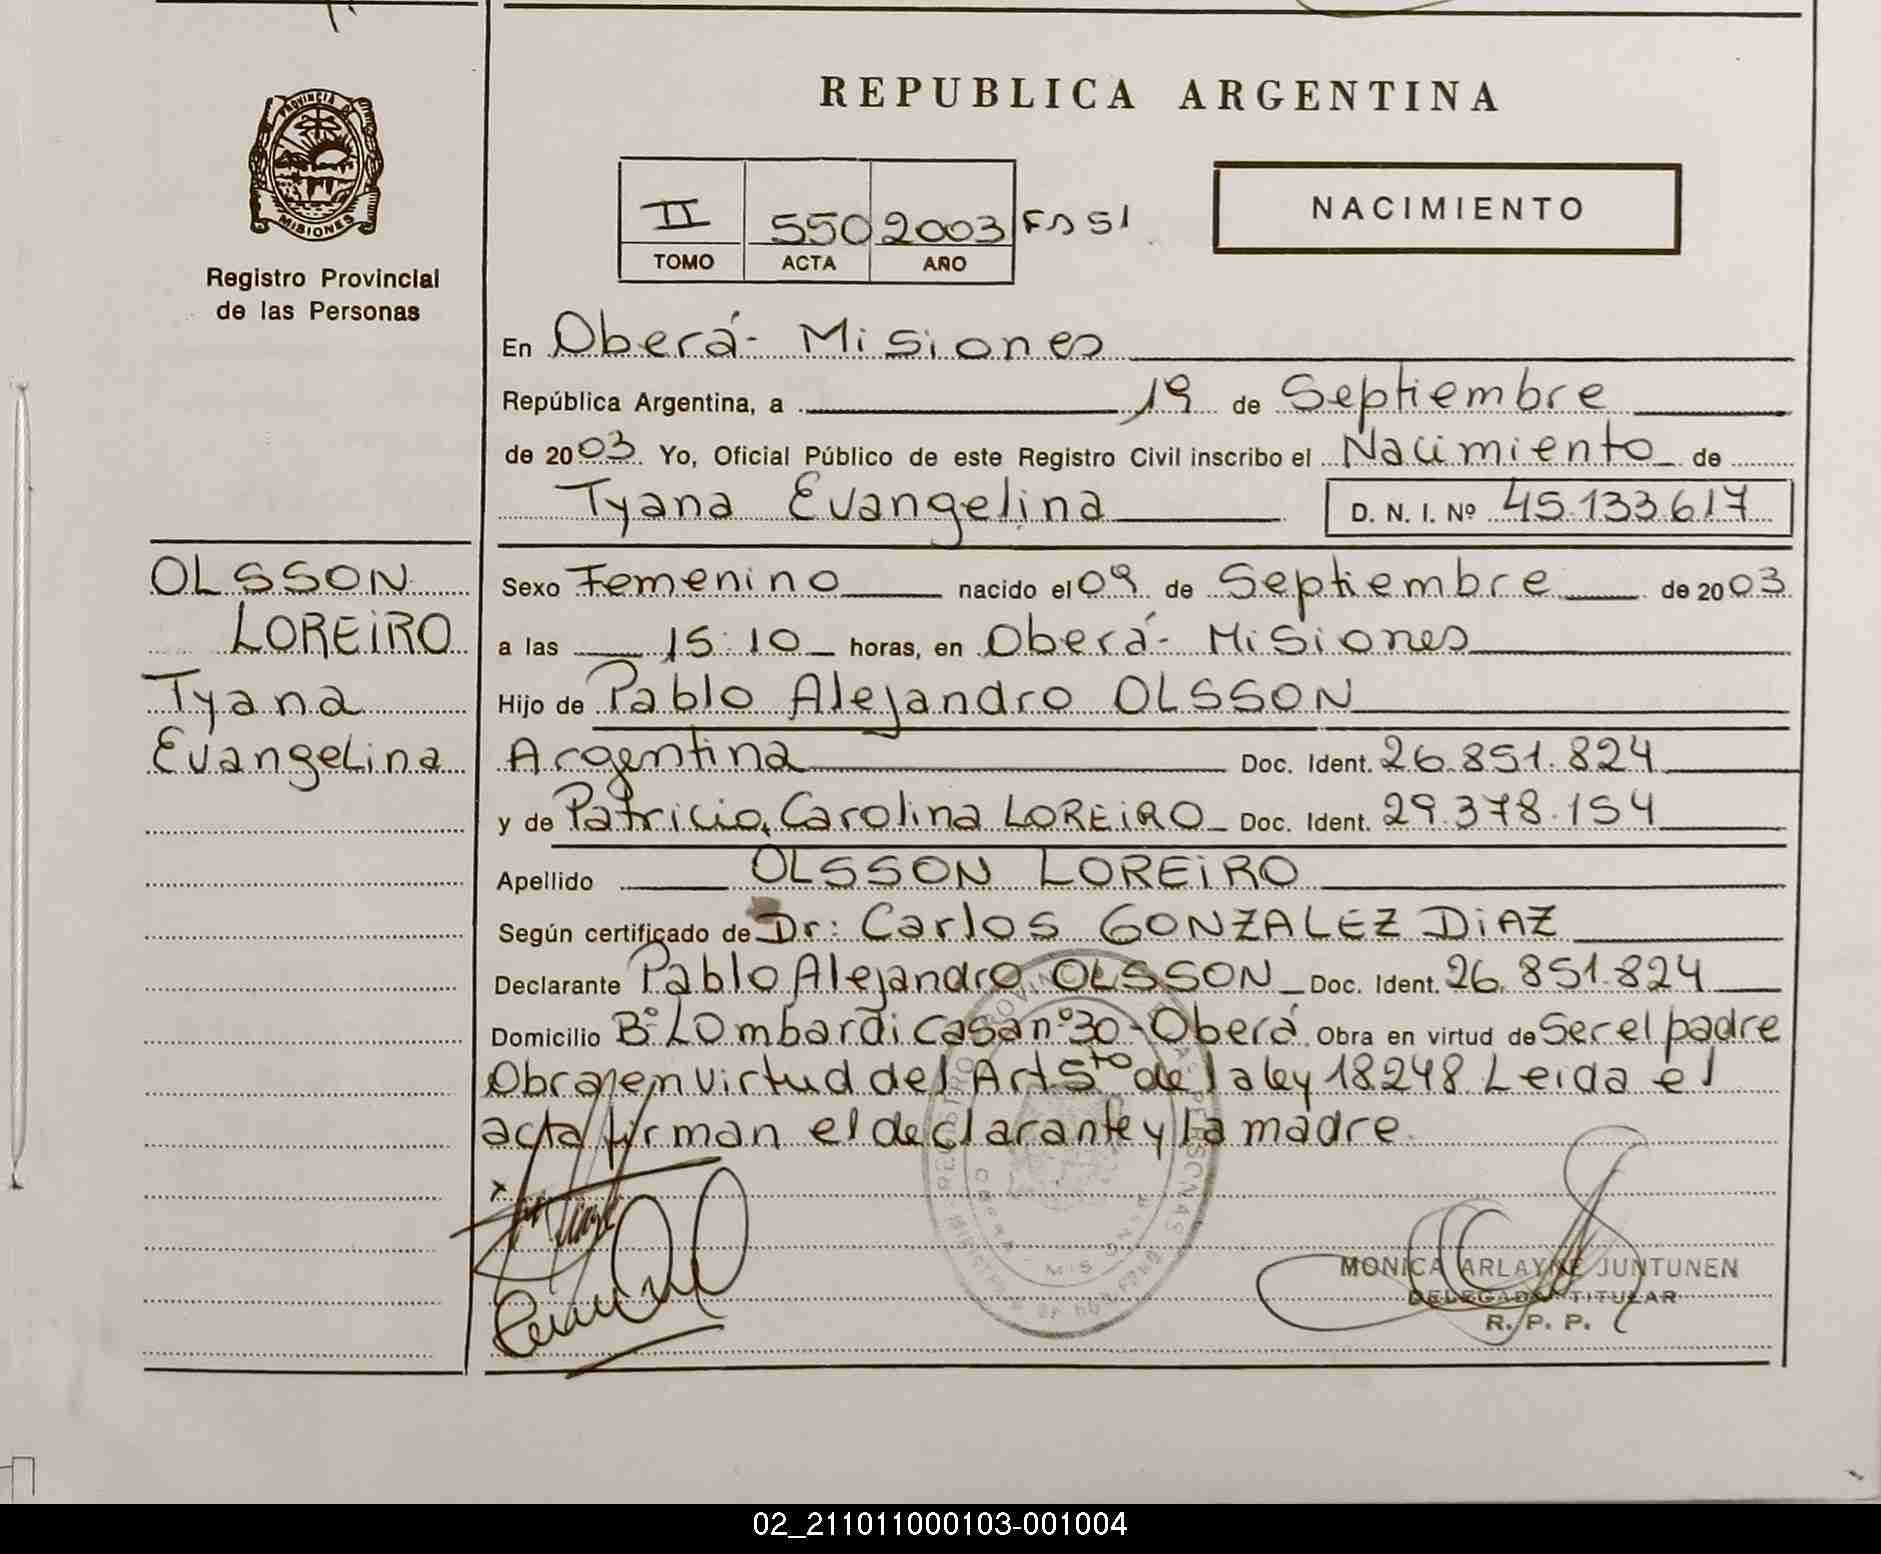 REPUBLICA ARGENTINA
PROVINCIA DE
MISIONES
Registro Provincial
de las Personas
II 550 2003 Fº 51
TOMO ACTA AÑO
NACIMIENTO
En Oberá - Misiones
República Argentina, a 19 de Septiembre
de 2003 Yo, Oficial Público de este Registro Civil inscribo el Nacimiento de
Tyana Evangelina D. N. I. Nº 45.133.617
OLSSON
LOREiRO
Tyana
Evangelina
Sexo Femenino nacido el 09 de Septiembre de 2003
a las 15:10 horas, en Oberá - Misiones
Hijo de Pablo Alejandro OLSSON
Argentina Doc. Ident. 26.851.824
y de Patricia Carolina LOREiRO Doc. Ident. 29.378.154
Apellido OLSSON LOREiRO
Según certificado de Dr: Carlos GONZALEZ DiAZ
Declarante Pablo Alejandro OLSSON Doc. Ident. 26.851.824
Domicilio Bº LOmbardi casa nº 30 - Oberá Obra en virtud de Ser el padre
Obra en virtud del Art 5to de la ley 18248 Leida el
acta firman el declarante y la madre.
MONICA ARLAYNE JUNTUNEN
DELEGADA TITULAR
R. P. P.
02_211011000103-001004